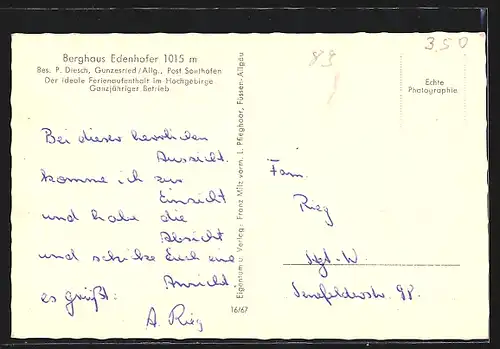 Berghaus Edenhofer 1015 m
Bes. P. Diesch, Gunzesried/Allg., Post Sonthofen
Der ideale Ferienaufenthalt im Hochgebirge
Ganzjähriger Betrieb
Bei dieser herrlichen
Aussicht.
komme ich zur
Einsicht
und habe die
Absicht
und schicke Euch eine
Ansicht.
es grüßt:
A. Rieg
Eigentum u. Verlag: Franz Milz vorm. L. Pfleghaar, Füssen-Allgäu
16/67
83
3,50
Echte
Photographie
Fam.
Rieg
Stgt. W.
Senefelderstr. 98.